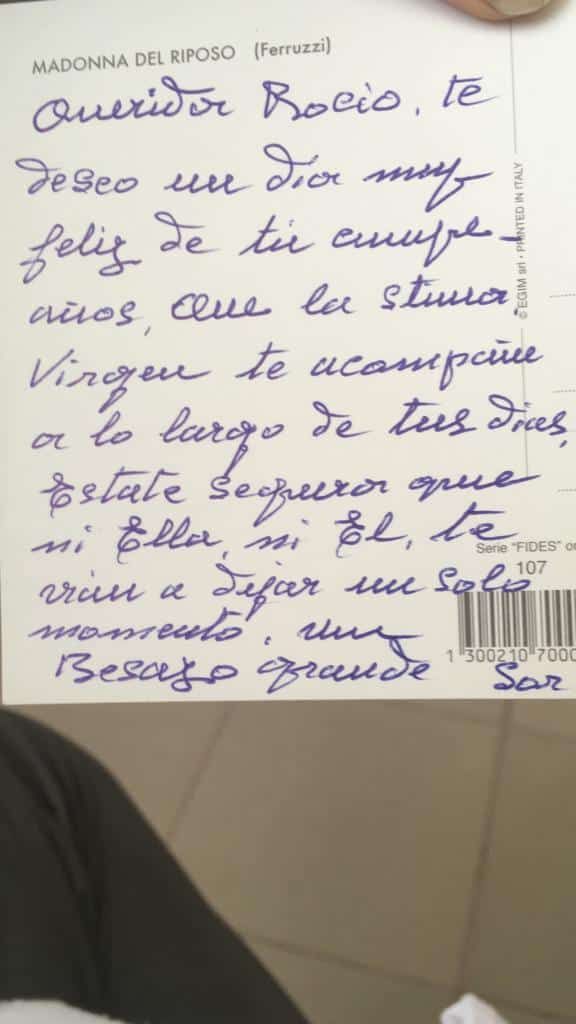 MADONNA DEL RIPOSO (Ferruzzi)
Querida Rocio, te
deseo un día muy
feliz de tu cumple-
años, que la stma
Virgen te acompañe
a lo largo de tus días,
Estate segura que
ni Ella, ni Él, te
van a dejar un solo
momento. un
Besazo grande
Sor
© EGIM srl • PRINTED IN ITALY
Serie "FIDES" or
107
1 300210 7000